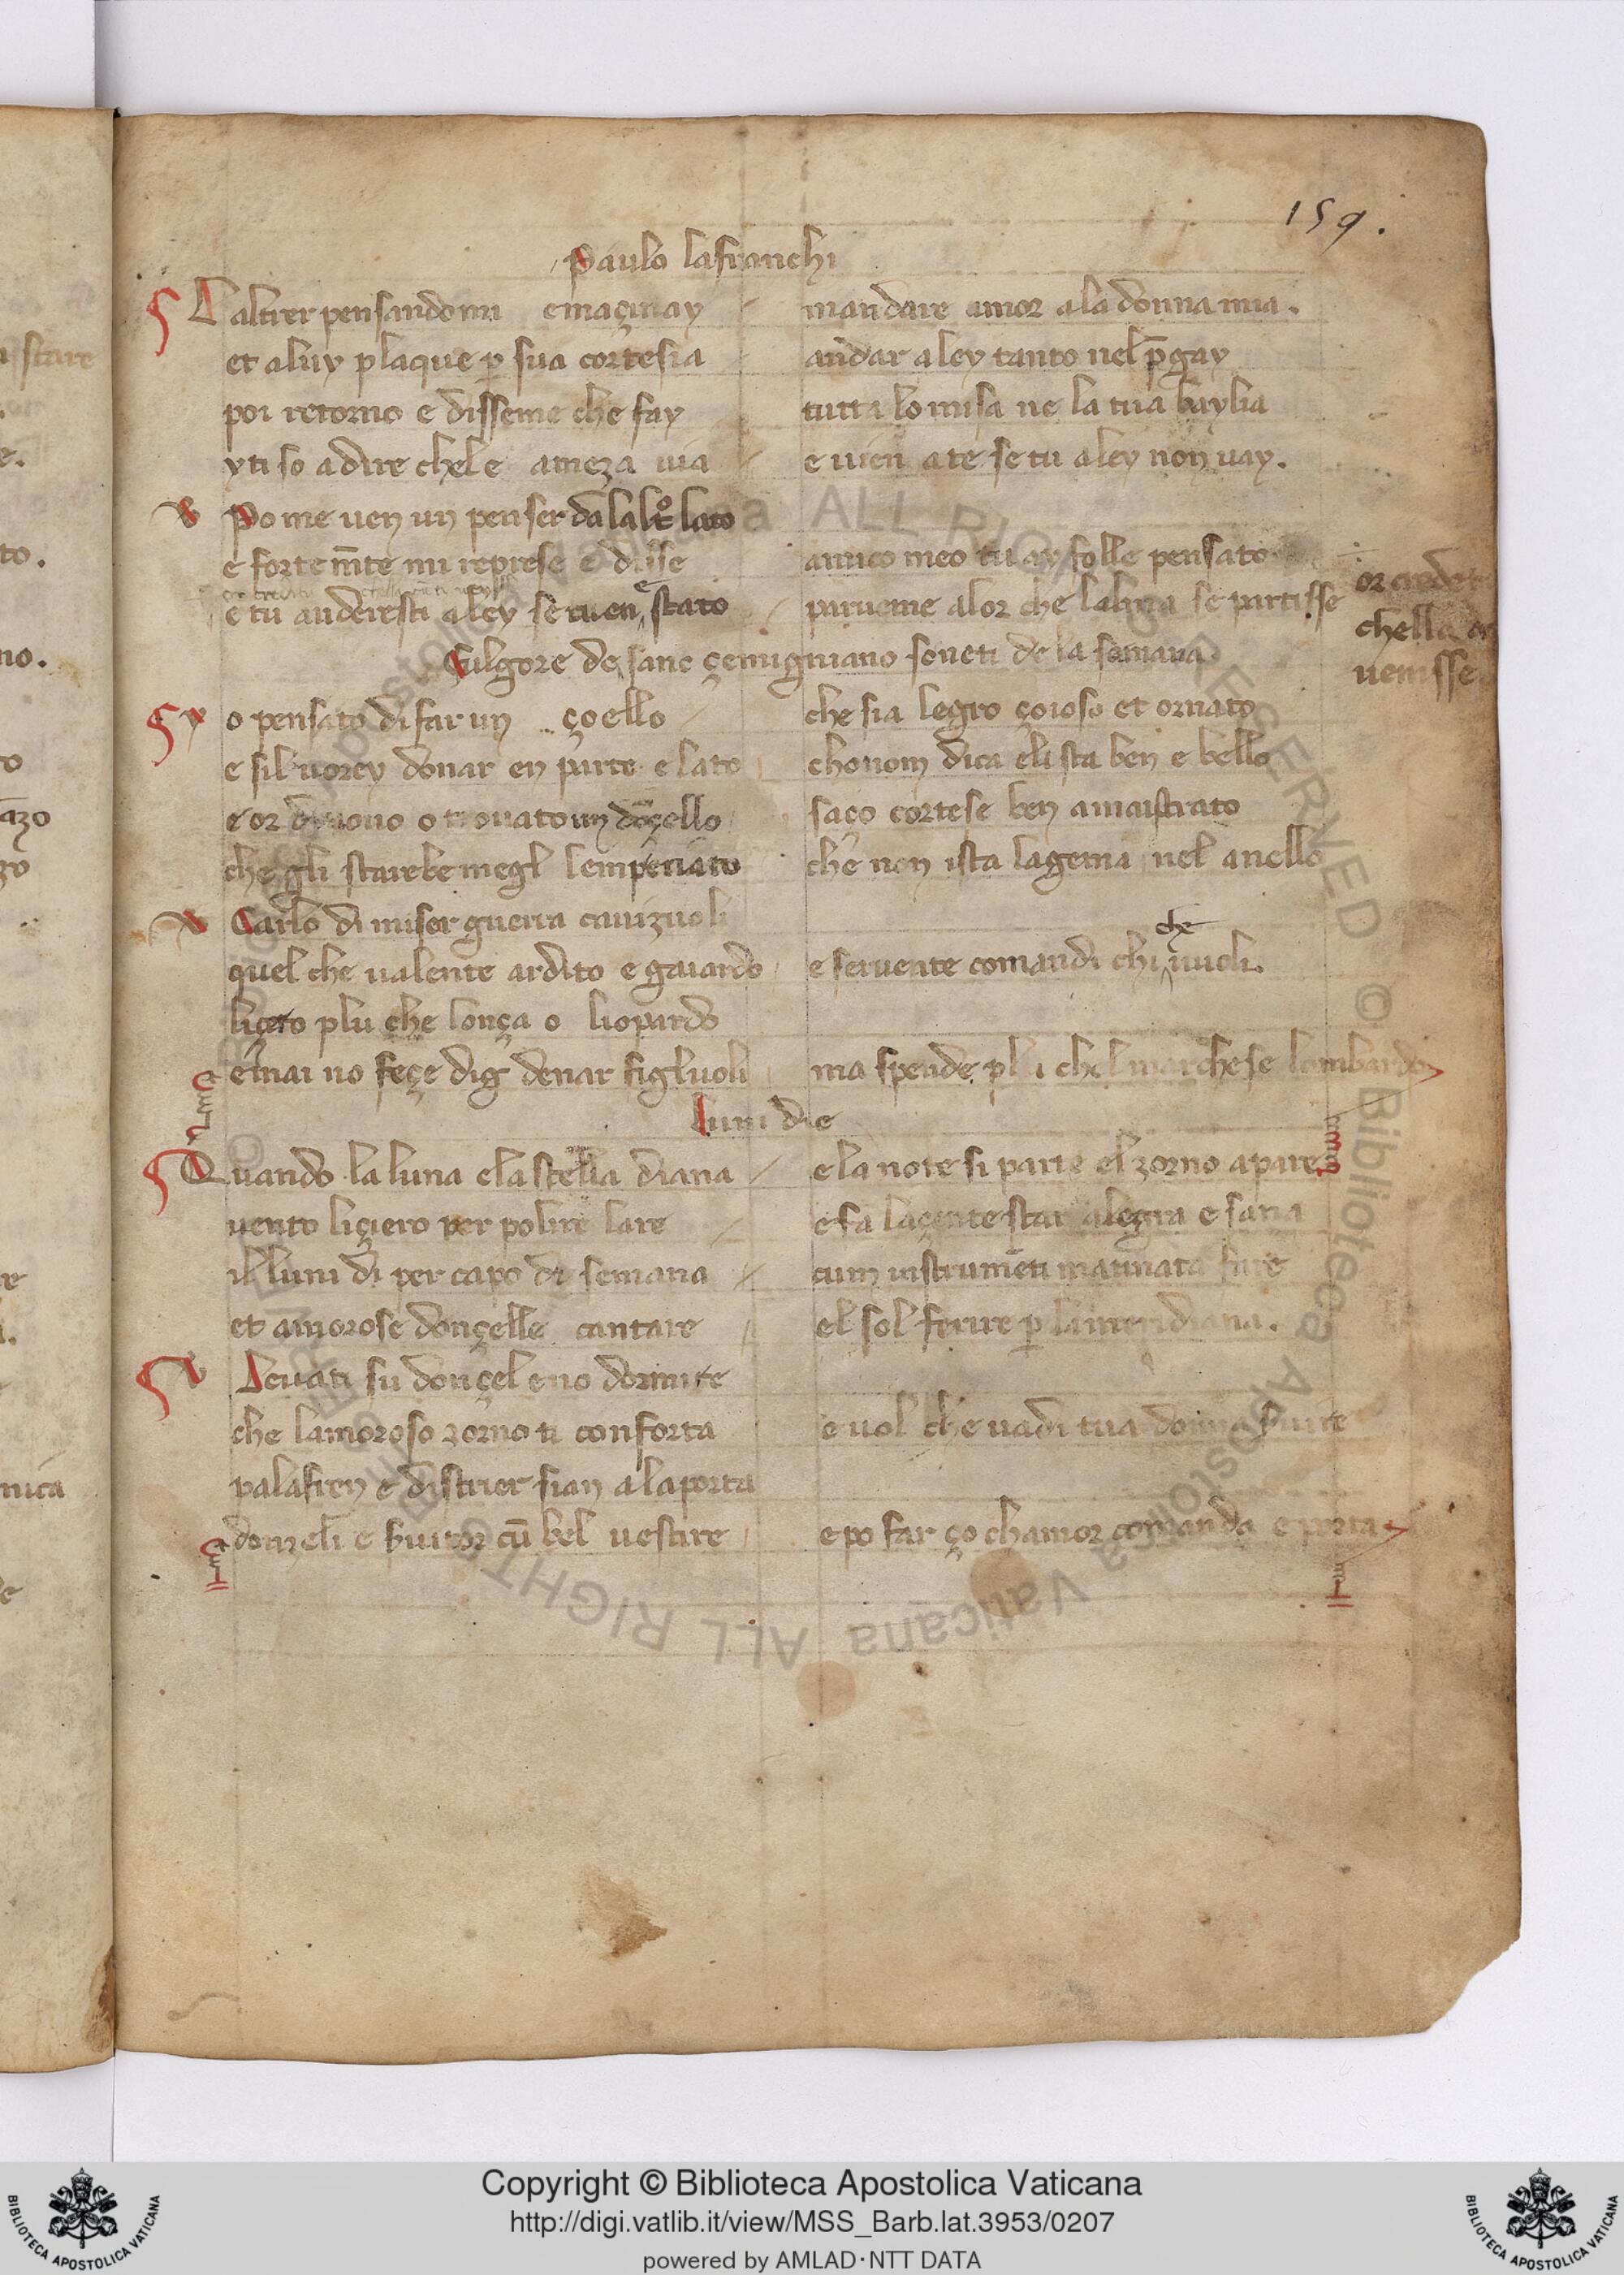 159.
Paulo lafranchi
Laltrer pensandomi emaçinay mandare amor ala donna mia.
et aluy plaque p sua cortesia andar aley tanto nel p̄gay
poi retorno e disseme che fay tutta lo misa ne la tua baylia
yti so adire chele ameza uia e uien ate se tu aley non uay.
Po me uen un penser dalaltº lato
e forte m̄te mi represe e disse amico meo tu ay folle pensato
e tu anderesti aley se tuen e stato parueme alor che labura se partisse
or credet
chella
uenisse
Fulgore de sanc çemigniano soneti de la semana
Y o pensato di far un çoello che sia legro çoioso et ornato
e sil uorey donar en parte e lato chonom dica eli sta ben e bello
e or di nouo o trouato un dōçello saço cortese ben amaistrato
che gli starebe megl lemperiato che non ista lagema nel anello
Carlo di miser guerra cauizuoli
quel che ualente ardito e gaiardo e seruente comandi chi che uuoli.
liçero plu che lonça o liopardo
e mai no feçe dig denar figluoli ma spende plu chel marchese lombardo
luni die
Quando la luna ela stella diana e la note si parte el zorno apare
uento liçiero per polire lare e fa laçente star alegra e sana
il luni di per capo di semana cum instrumēti matinata fare
et amorose donçelle cantare el sol ferire p la meridiana.
Leuati su donçel e no dormire
che lamoroso zorno ti conforta e uol che uadi tua donna seruire
palafren e distrier sian ala porta
donzeli e seruitor cū bel uestire e po far ço chamor comanda e porta
Copyright © Biblioteca Apostolica Vaticana
http://digi.vatlib.it/view/MSS_Barb.lat.3953/0207
powered by AMLAD·NTT DATA
BIBLIOTECA APOSTOLICA VATICANA
BIBLIOTECA APOSTOLICA VATICANA